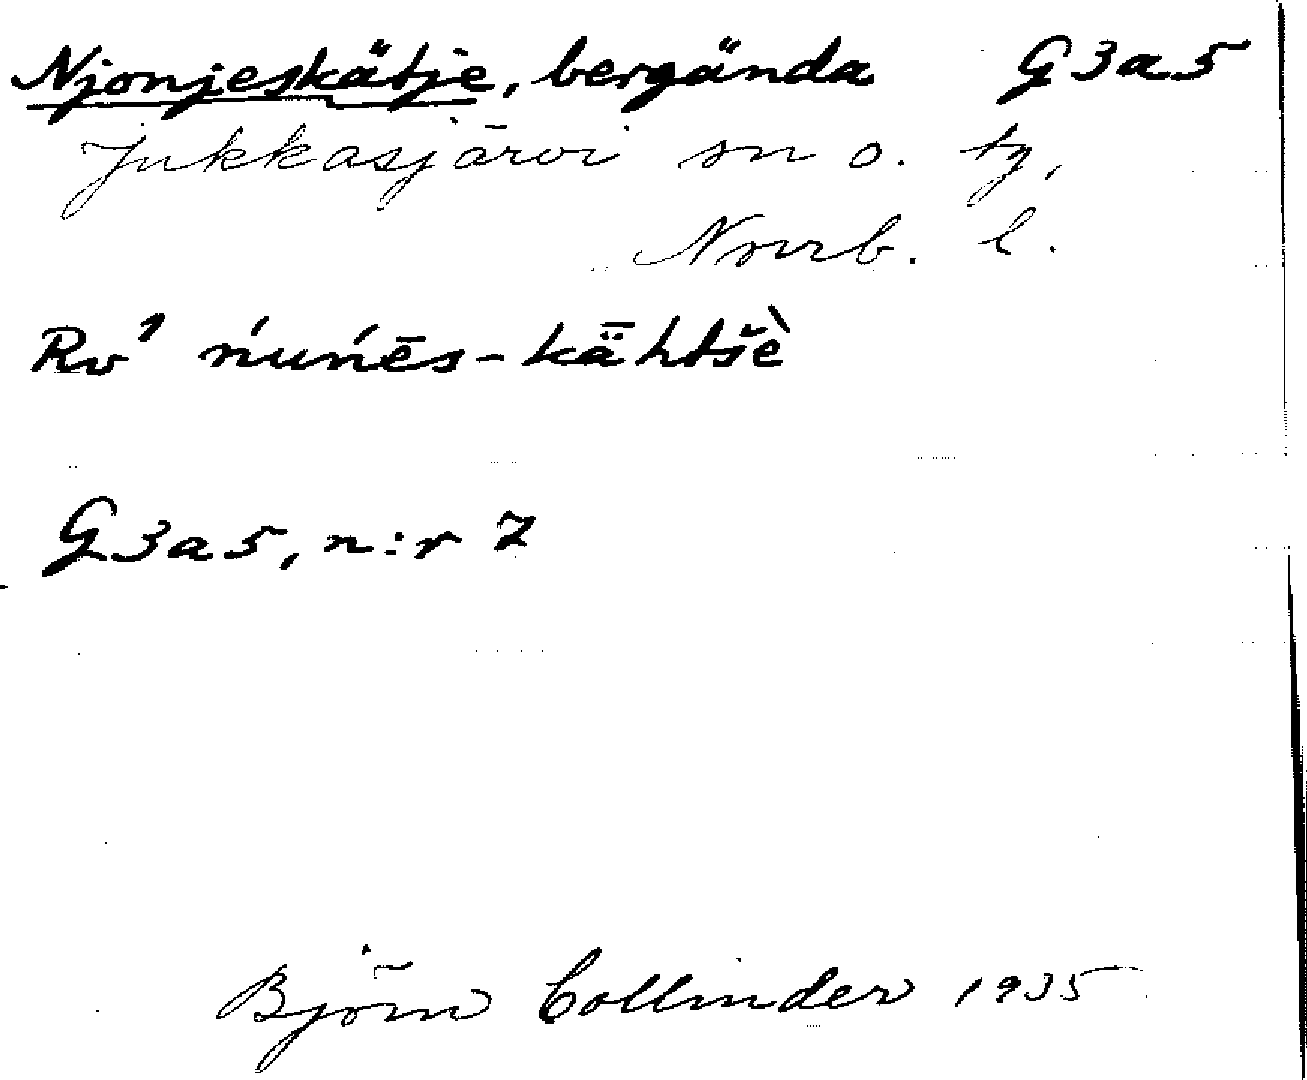 Njonjeskätje, bergända G3a5
Jukkasjärvi sn o. tg,
Norrb. l.
Rv¹ ńuńēs-kǟhtšè
G3a5, n:r 7
Björn Collinder 1935